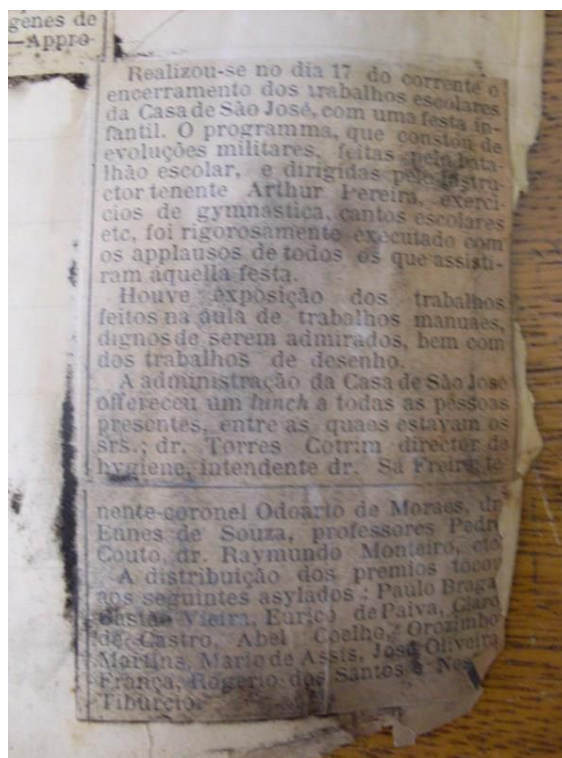 genes de
—Appro-
Realizou-se no dia 17 do corrente o
encerramento dos trabalhos escolares
da Casa de São José, com uma festa in-
fantil. O programma, que constou de
evoluções militares, feitas pelo bata-
lhão escolar, e dirigidas pelo instru-
ctor tenente Arthur Pereira, exerci-
cios de gymnastica, cantos escolares
etc, foi rigorosamente executado com
os applausos de todos os que assisti-
ram áquella festa.
Houve exposição dos trabalhos
feitos na aula de trabalhos manuaes,
dignos de serem admirados, bem com
dos trabalhos de desenho.
A administração da Casa de São José
offereceu um lunch a todas as pessoas
presentes, entre as quaes estavam os
srs.; dr. Torres Cotrim director de
hygiene, intendente dr. Sá Freire, te-
nente-coronel Odoarto de Moraes, dr
Ennes de Souza, professores Pedr
Couto, dr. Raymundo Monteiro, etc
A distribuição dos premios tocou
aos seguintes asylados : Paulo Braga
Vieira, Eurico de Paiva, Claro
de Castro, Abel Coelho, Orozimbo
Martins, Mario de Assis, José Oliveira
França, Rogerio dos Santos e Nes
Tiburcio